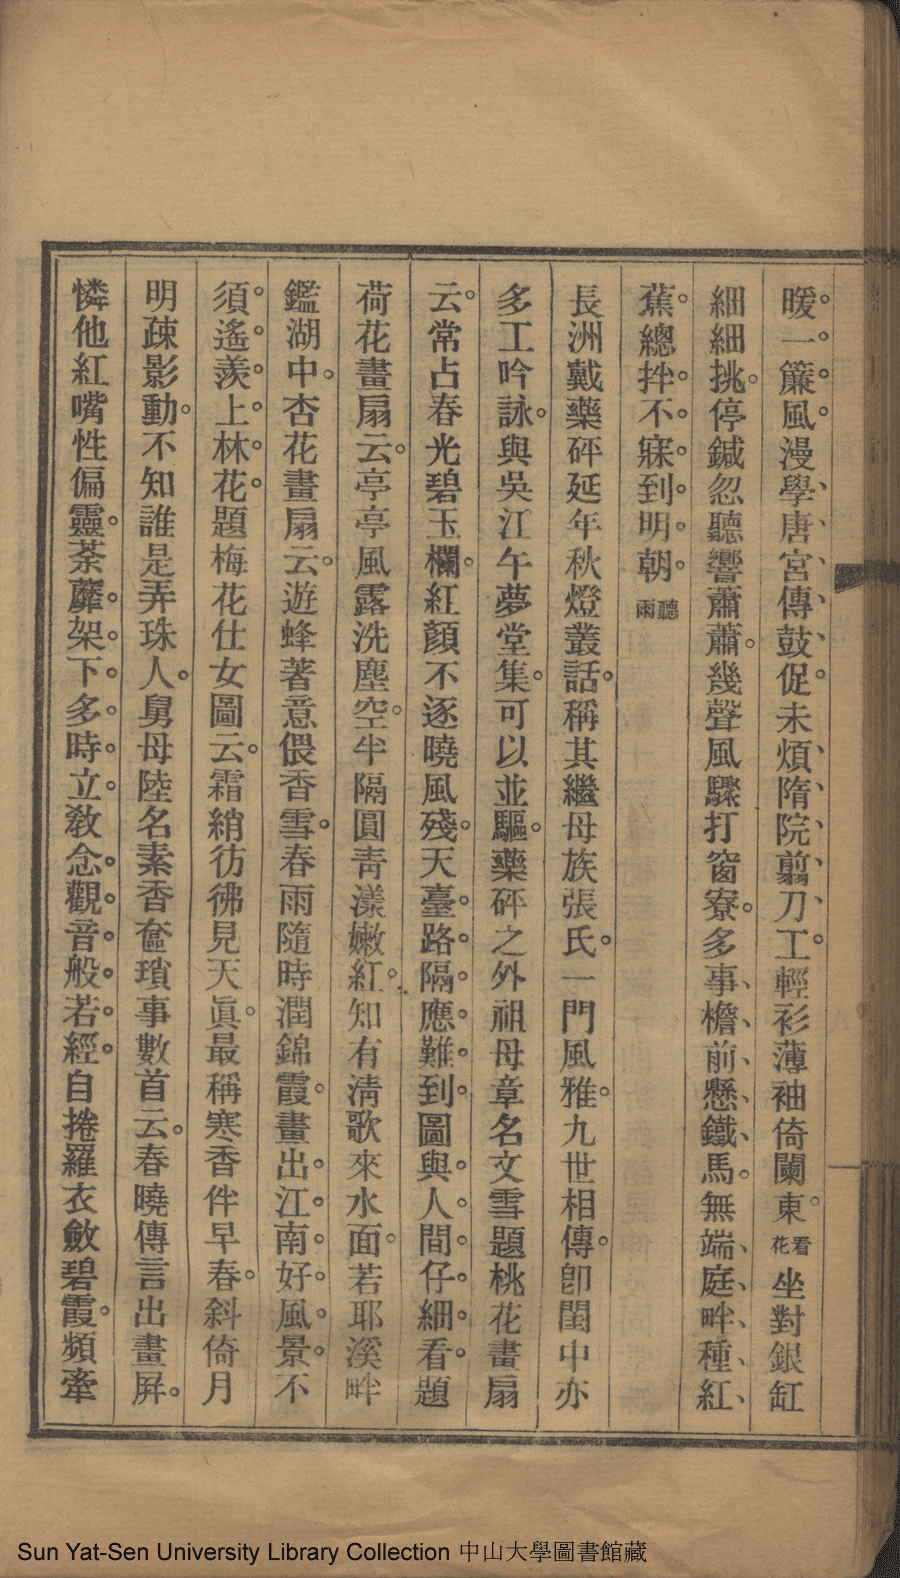 暖。一。簾。風。漫學、唐、宮、傳、鼓、促。未煩、隋、院、翦、刀、工。輕衫薄袖倚闌東。看花坐對銀缸
細細挑。停鍼忽聽響蕭蕭。幾聲風驟打窗寮。多事、檐、前、懸、鐵、馬。無端、庭、畔、種、紅、
蕉。總拌。不。寐。到。明。朝。聽雨
長洲戴藥砰延年秋燈叢話。稱其繼母族張氏。一門風雅。九世相傳。卽閨中亦
多工吟詠。與吳江午夢堂集。可以並驅。藥砰之外祖母章名文雪題桃花畫扇
云。常占春光碧玉欄。紅顏不逐曉風殘。天臺。路。隔。應。難。到。圖與。人。間。仔。細。看。題
荷花畫扇云。亭亭風露洗塵空。半隔圓靑漾嫩紅。知有淸歌來水面。若耶溪畔
鑑湖中。杏花畫扇云。遊蜂著意偎香雪。春雨隨時潤錦霞。畫出。江。南。好。風。景。不
須。遙。羨。上。林。花。題梅花仕女圖云。霜綃彷彿見天眞。最稱寒香伴早春。斜倚月
明疎影動。不知誰是弄珠人。舅母陸名素香奩瑣事數首云。春曉傳言出畫屏。
憐他紅嘴性偏靈。荼蘼。架。下。多。時。立。敎念。觀。音。般。若。經。自捲羅衣斂碧霞。頻牽
Sun Yat-Sen University Library Collection 中山大學圖書館藏